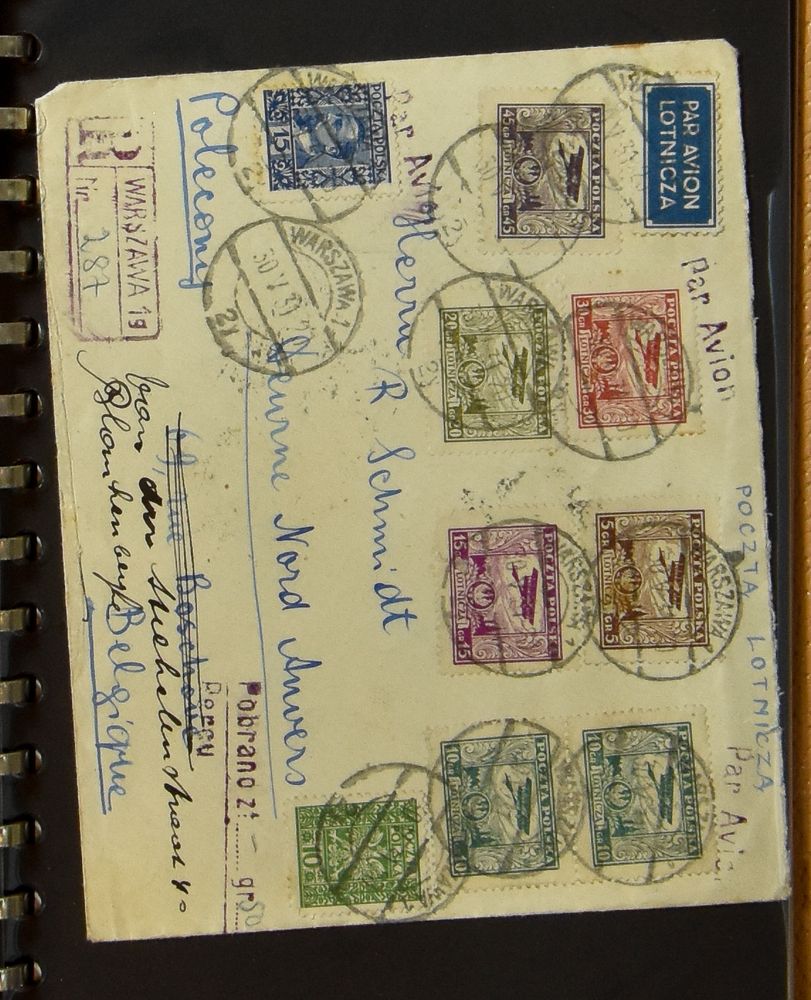 POCZTA LOTNICZA
PAR AVION
LOTNICZA
Par Avion
Par Avi
POCZTA POLSKA
45 GR LOTNICZA GR 45
POCZTA POLSKA
30 GR LOTNICZA GR 30
POCZTA POLSKA
20 GR LOTNICZA GR 20
POCZTA POLSKA
5 GR LOTNICZA GR 5
POCZTA POLSKA
15 GR LOTNICZA GR 15
POCZTA POLSKA
10 GR LOTNICZA GR 10
POCZTA POLSKA
10 GR LOTNICZA GR 10
POCZTA POLSKA
15
POCZTA
POLSKA
10
Par Avion
Herrn R. Schmidt
WARSZAWA 1
30 V 31 21
21
Deurne Nord Anvers
Polecony
69, rue
Belgique
Blankenberghe
R
WARSZAWA 19
Nr. 287
Pobrano zł –
gr 50
Porou